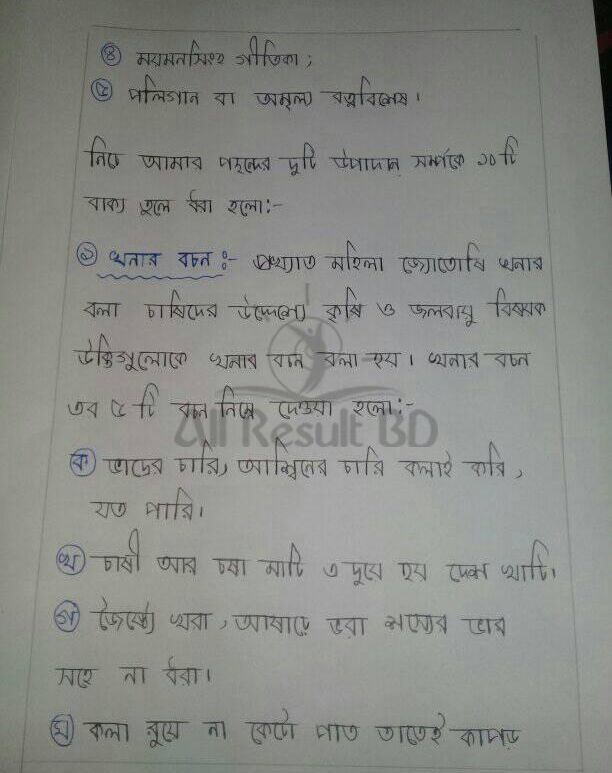 ৪ ময়মনসিংহ গীতিকা;
৫ পলিগান বা অমূল্য রত্নবিশেষ।
নিচে আমার পছন্দের দুটি উপাদান সম্পর্কে ১০টি
বাক্য তুলে ধরা হলো:-
১ খনার বচন:- প্রখ্যাত মহিলা জ্যোতোষি খনার
বলা চাষিদের উদ্দেশ্যে কৃষি ও জলবায়ু বিষয়ক
উক্তিগুলোকে খনার বচন বলা হয়। খনার বচন
এর ৫ টি বচন নিম্নে দেওয়া হলো:-
All Result BD
ক ভাদ্রের চারি, আশ্বিনের চারি কলাই করি,
যত পারি।
খ চাষী আর চষা মাটি এ দুয়ে হয় দেশ খাটি।
গ জৈষ্ঠ্যে খরা, আষাঢ়ে ভরা শস্যের ভার
সহে না ধরা।
ঘ কলা রুয়ে না কেটো পাত তাতেই কাপড়